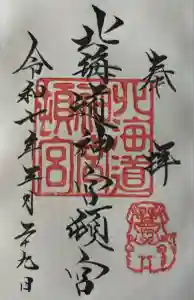 奉拝
北海道神宮頓宮
北海道
神宮
頓宮
令和七年五月二十九日